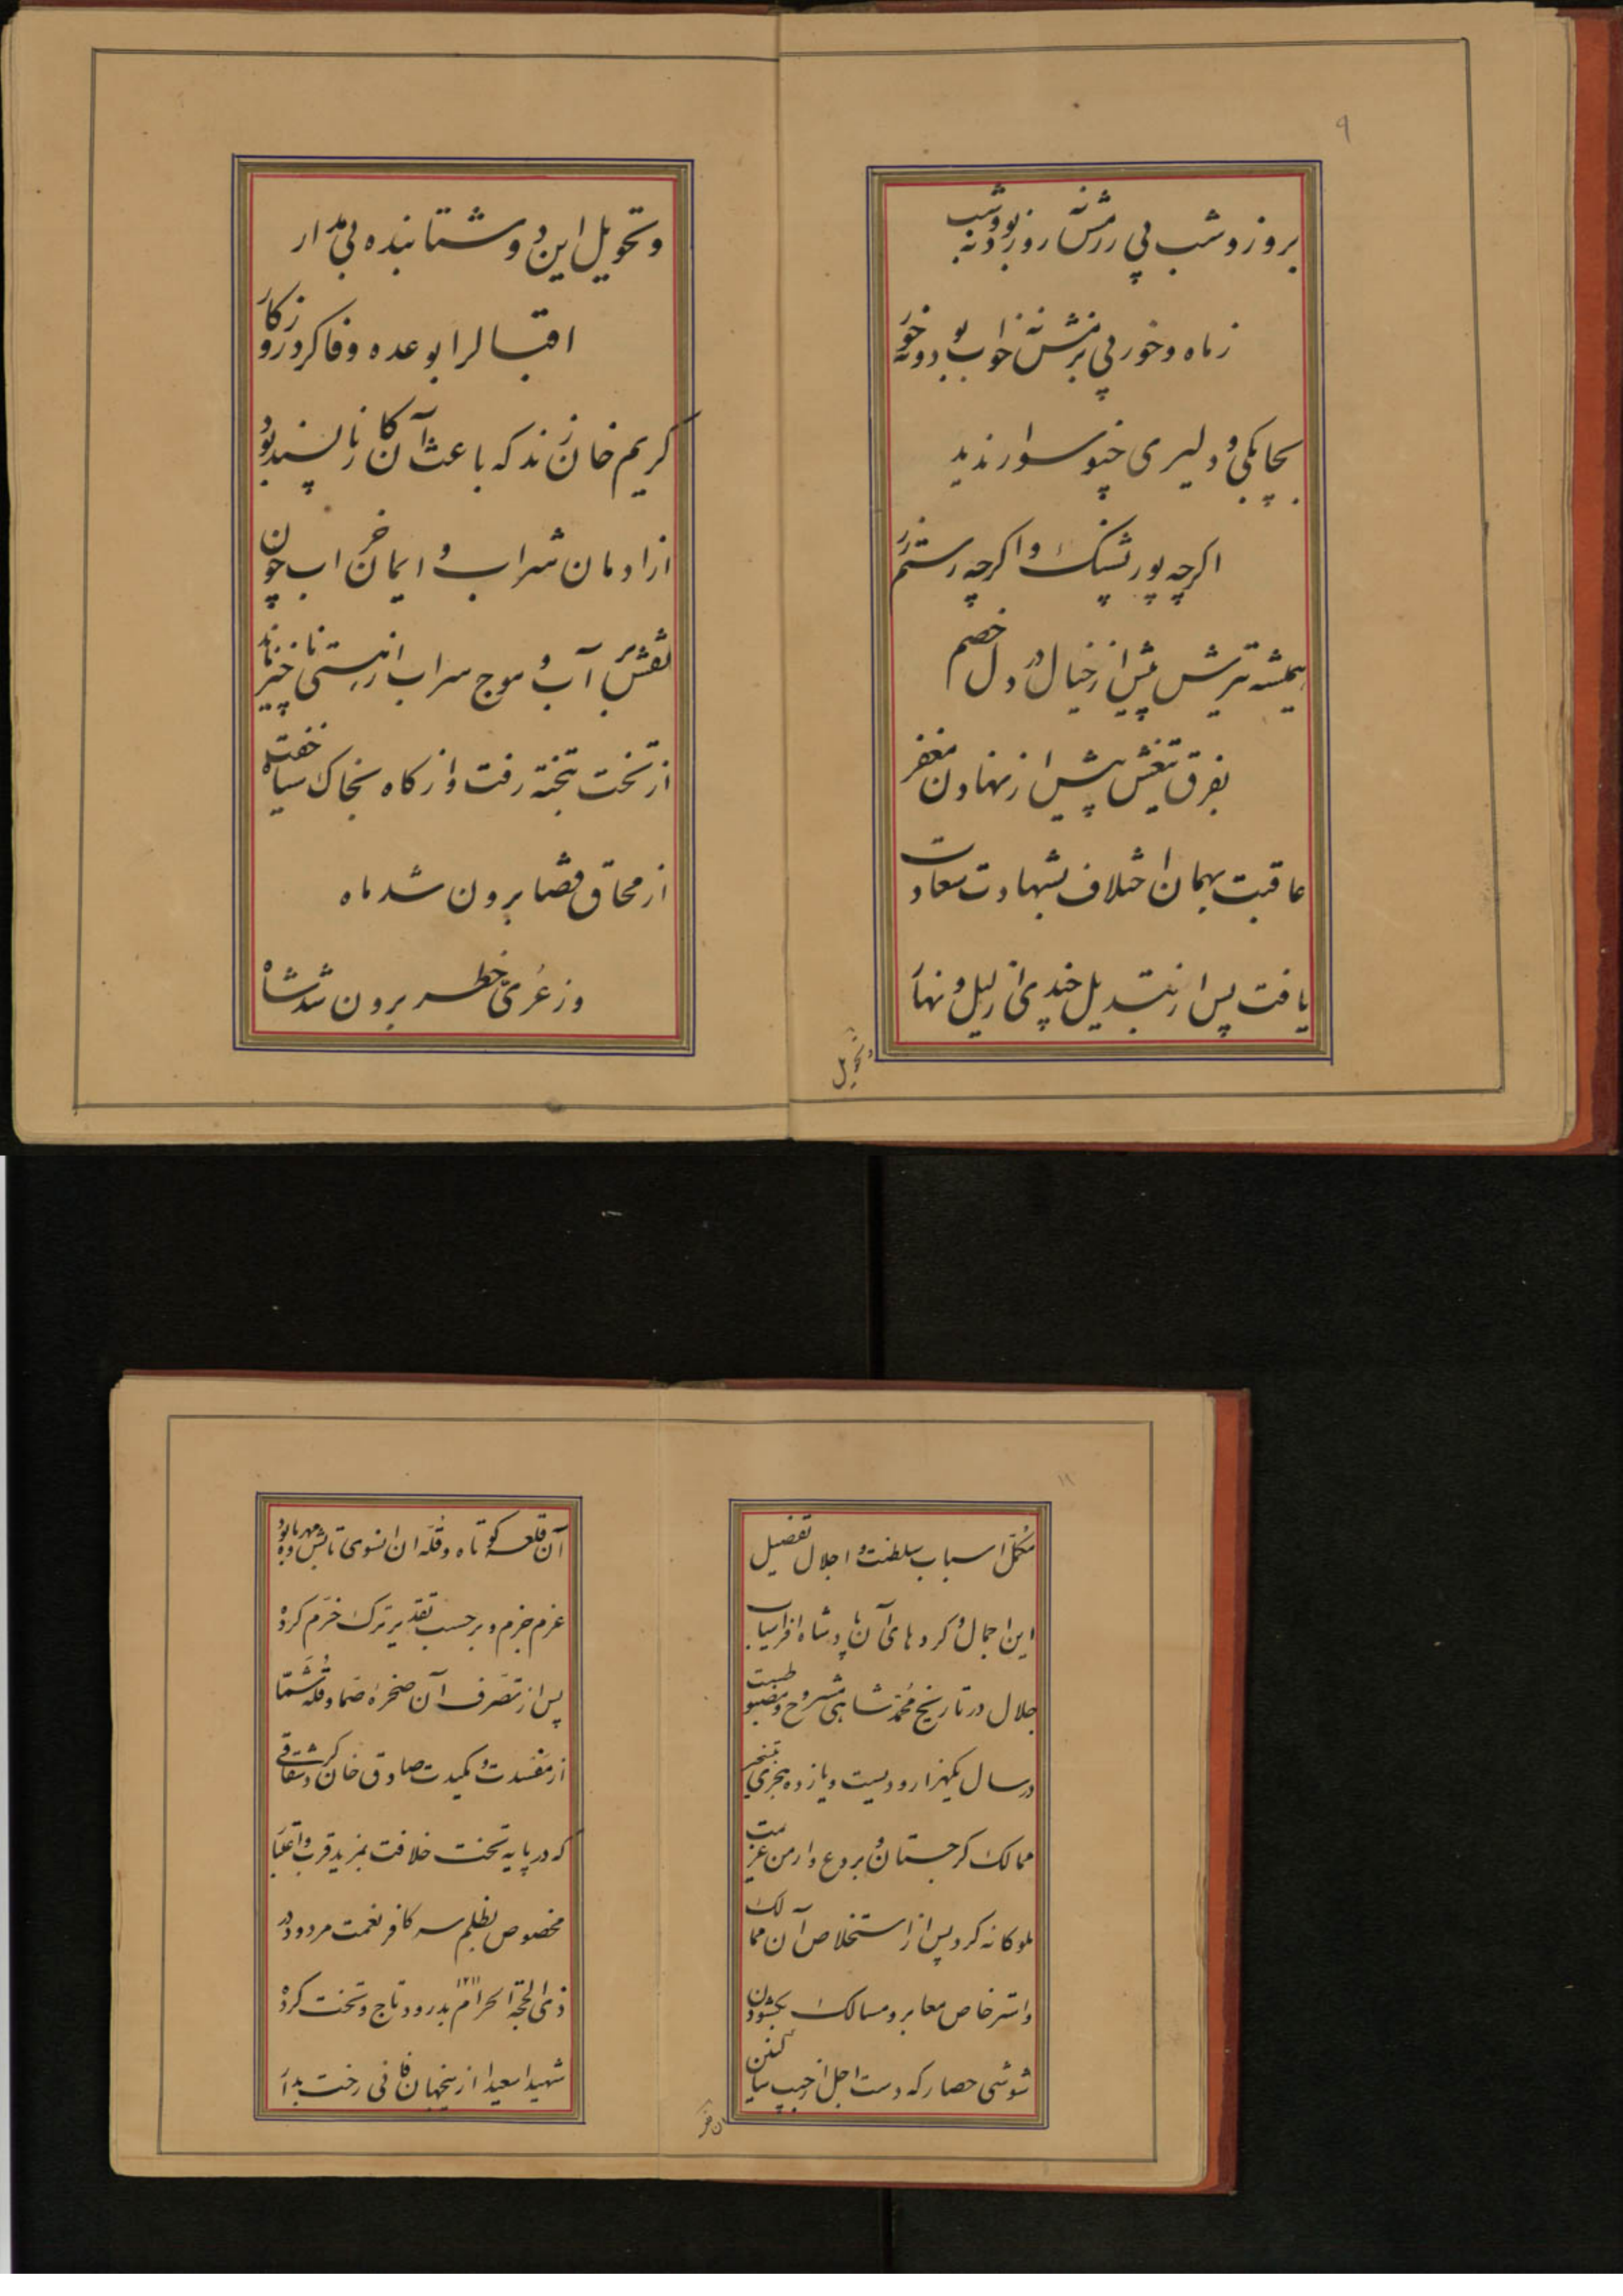 ۹
بروز و شب پی رزمش نه روز بود و نه شب
ز ماه و خور پی بزمش نه خواب بود و نه خور
بچابکی و دلیری چنو سوار ندید
اگرچه پور پشنگ و اگرچه رستم زر
همیشه تیرش پیش از خیال در دل خصم
بفرق تیغش پیش از نهادن مغفر
عاقبت بهمان اختلاف بشهادت سعادت
یافت پس از تبدیل چندی از لیل و نهار
و تحویل
و تحویل این دو شتابنده بی مدار
اقبالرا بوعده وفا کرد روزکار
کریم خان زند که باعث آن کار ناپسند بود
از ادمان شراب و ایمان خراب چون
نقش بر آب و موج سراب از هستی ناچیز ماند
از تخت بتخته رفت و از کاه بخاک سیاه خفت
از محاق قضا برون شد ماه
وز عری خطر برون شد شاه
۱۱
مکمل اسباب سلطنت و اجلال تفصیل
این اجمال و کردهای آن پادشاه افراسیاب
جلال در تاریخ محمدشاهی مشروح و مضبوطست
در سال یکهزار و دویست و یازده هجری تسخیر
ممالک کرجستان و بروع و ارمن عزیمت
ملوکانه کرد پس از استخلاص آن ممالک
و استرخاص معابر و مسالک بکشودن
شوشی حصار که دست اجل از جیب ساکنین
آن قلعه کوتاه و قله آن انسوی تابش مهر و ماه بود
عزم جزم و برحسب تقدیر ترک خرم کرد
پس از تصرف آن صخره صما و قله شما
از مفسدت و مکیدت صادق خان کرد شقاقی
که در پایه تخت خلافت بمزید قرب و اعتبار
مخصوص بظلم سه کافر نعمت مردود در
ذی الحجة الحرام ۱۲۱۱ بدرود تاج و تخت کرد
شهیدا سعیدا از ینجهان فانی رخت بدار